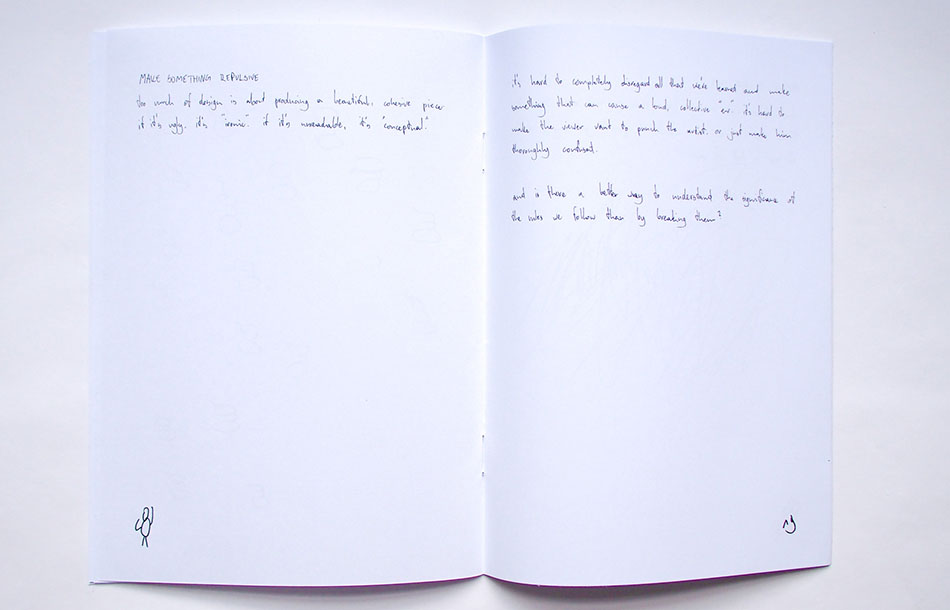 MAKE SOMETHING REPULSIVE
too much of design is about producing a beautiful, cohesive piece.
if it's ugly, it's "ironic". if it's unreadable, it's "conceptual."
it's hard to completely disregard all that we've learned and make
something that can cause a loud, collective "ew." it's hard to
make the viewer want to punch the artist. or just make him
thoroughly confused.
and is there a better way to understand the significance of
the rules we follow than by breaking them?